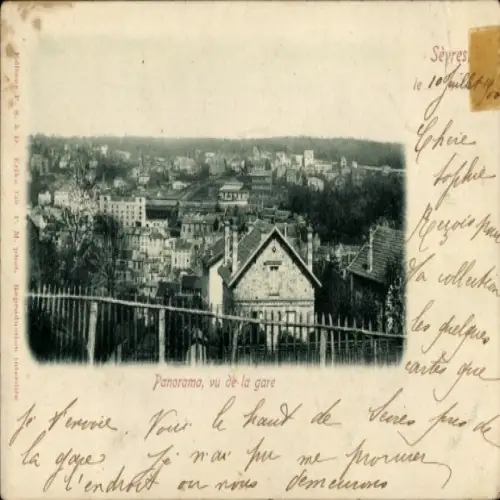 Sèvres,
le 10 Juillet 1900
Chère
Sophie
Reçois pour
ta collection
les quelques
cartes que
Panorama, vu de la gare
je t'envoie. Voici le haut de Sèvres près de
la gare Je n'ai pu me procurer
l'endroit ou nous demeurons